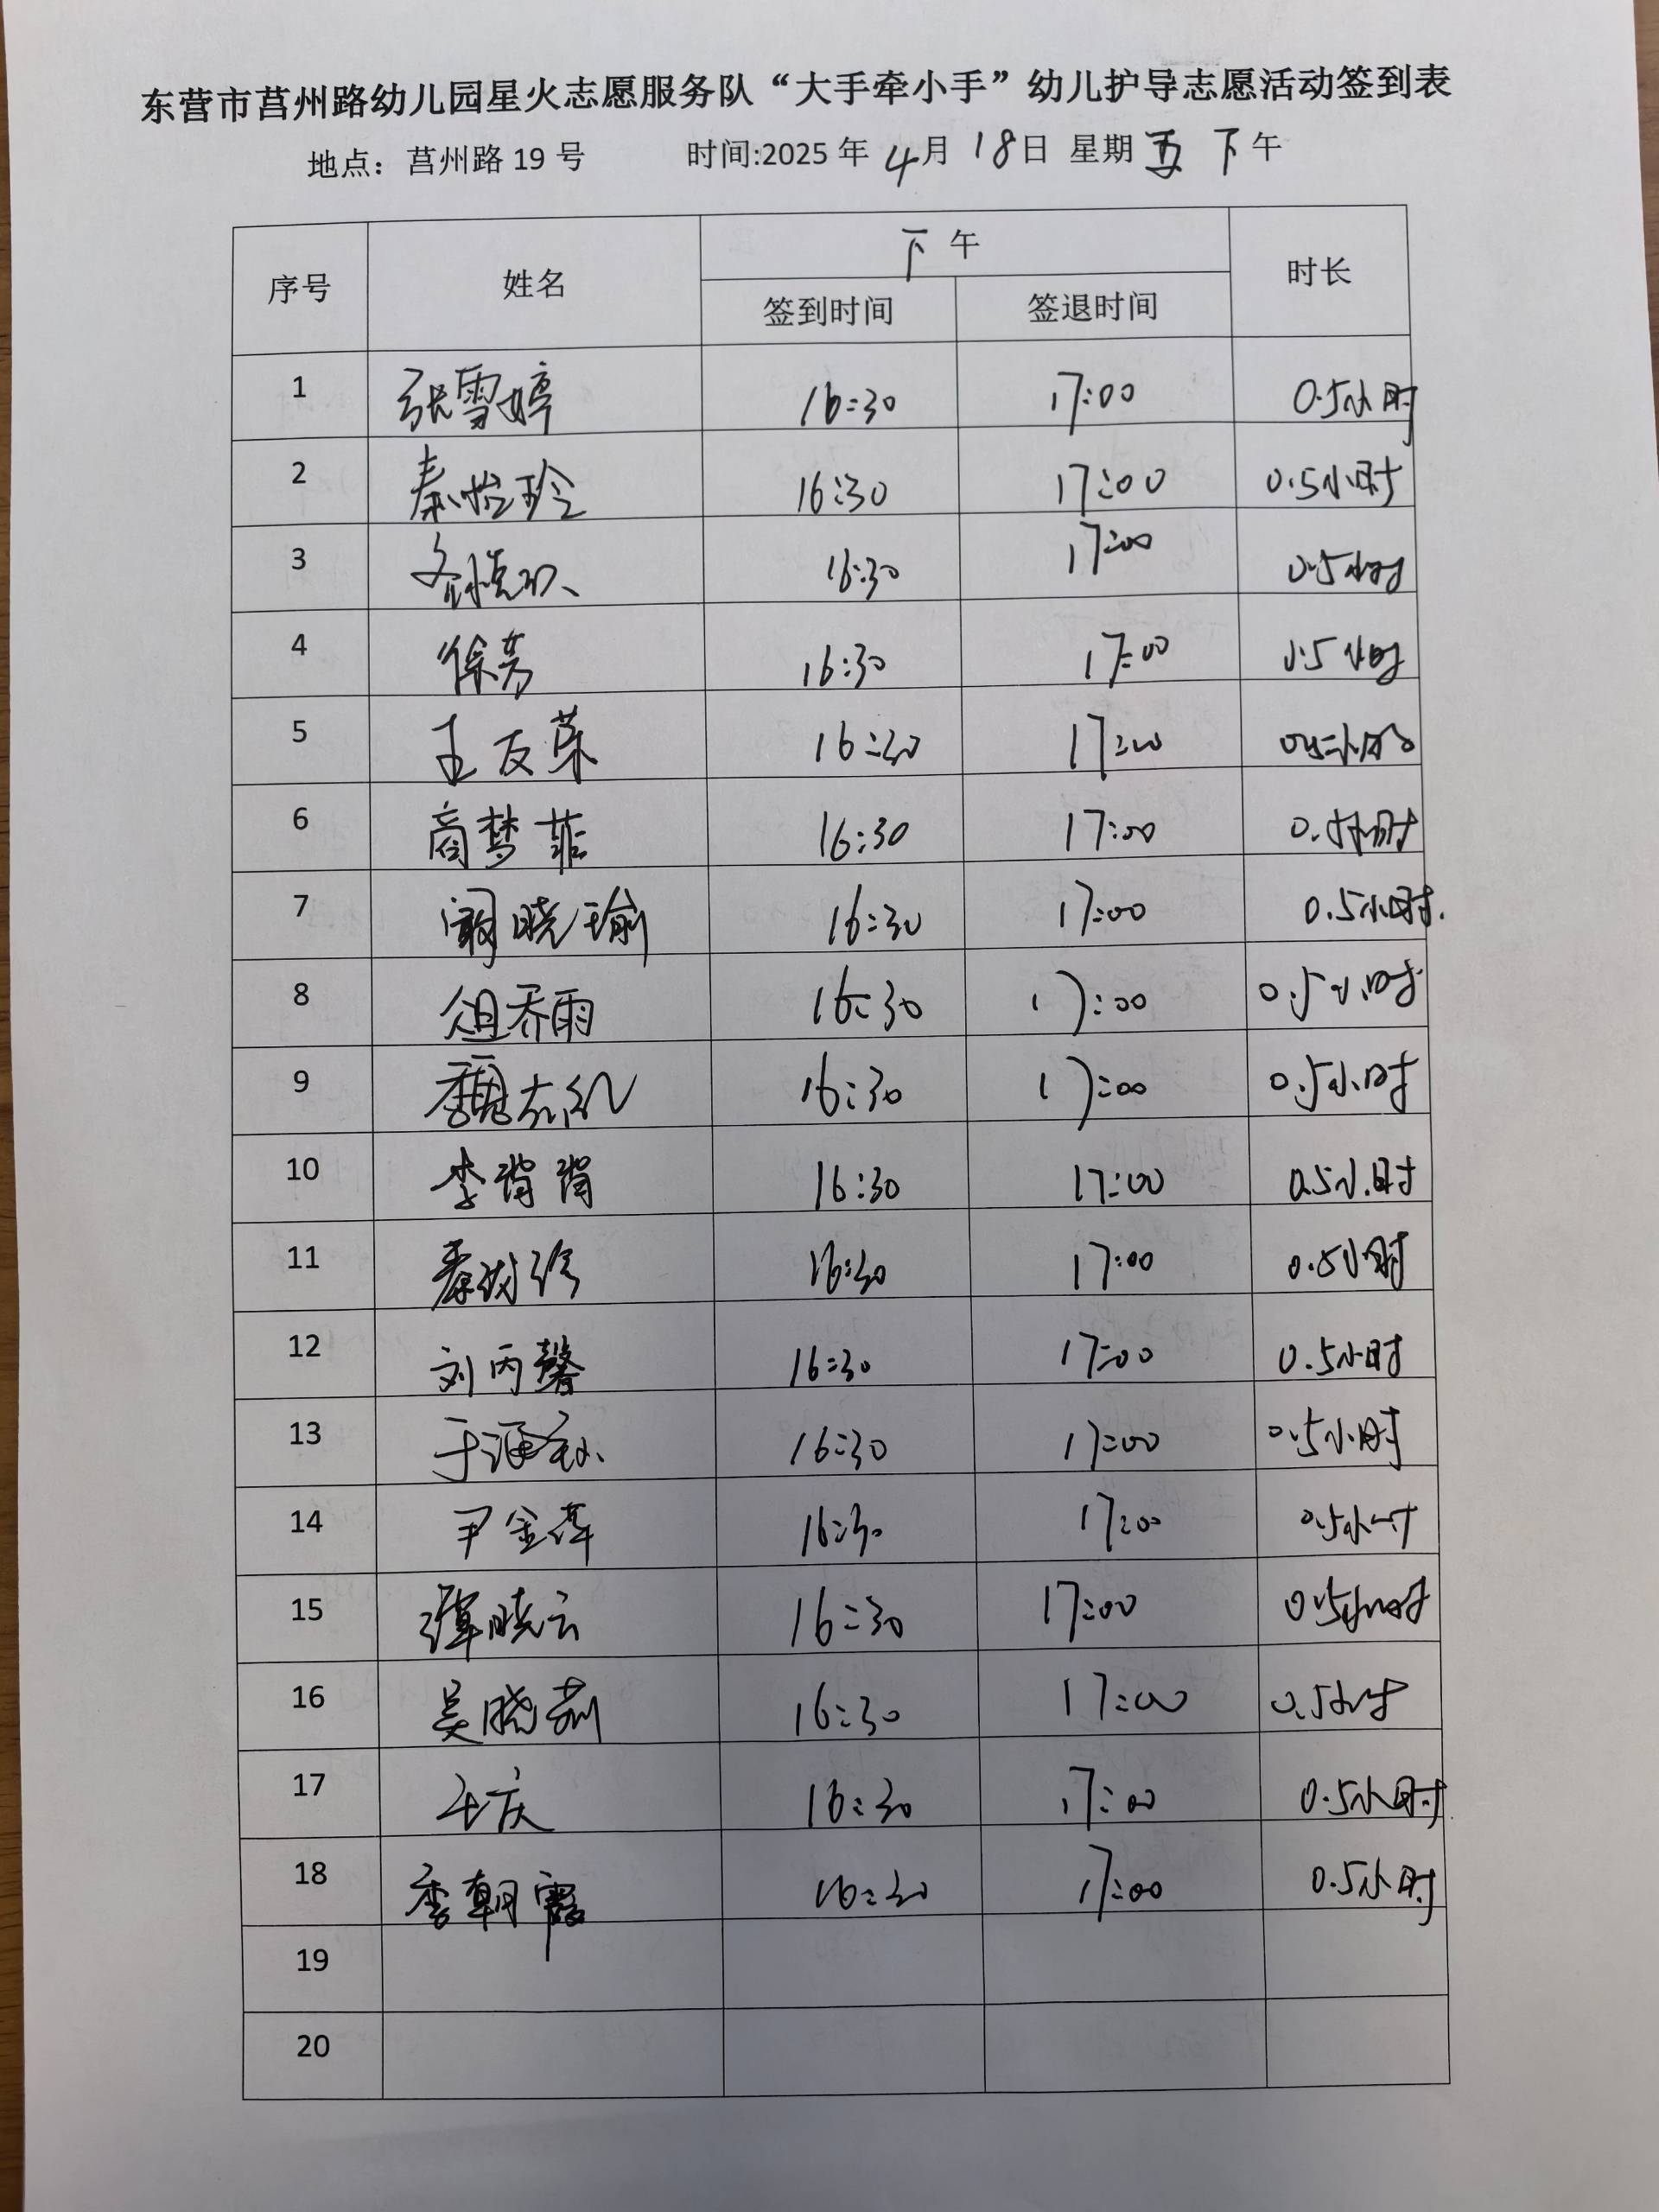 东营市莒州路幼儿园星火志愿服务队“大手牵小手”幼儿护导志愿活动签到表
地点：莒州路 19 号 时间:2025 年 4月 18日 星期 五 下 午
序号 姓名 下 午 时长
签到时间 签退时间
1 张雪婷 16:30 17:00 0.5小时
2 秦怡玲 16:30 17:00 0.5小时
3 16:30 17:00 0.5小时
4 徐芳 16:30 17:00 0.5小时
5 王友荣 16:30 17:00 0.5小时
6 商梦菲 16:30 17:00 0.5小时
7 阚晓瑜 16:30 17:00 0.5小时.
8 俎乔雨 16:30 17:00 0.5小时
9 16:30 17:00 0.5小时
10 李肖肖 16:30 17:00 0.5小时
11 16:30 17:00 0.5小时
12 刘丙馨 16:30 17:00 0.5小时
13 16:30 17:00 0.5小时
14 尹金萍 16:30 17:00 0.5小时
15 谭晓云 16:30 17:00 0.5小时
16 吴晓莉 16:30 17:00 0.5小时
17 16:30 17:00 0.5小时
18 李朝霞 16:30 17:00 0.5小时
19
20